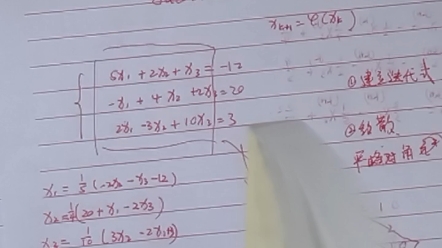 x_{k+1} = φ(x_k)
5x₁ + 2x₂ + x₃ = -12
-x₁ + 4x₂ + 2x₃ = 20
2x₁ - 3x₂ + 10x₃ = 3
①建立迭代式
②敛散
严格对角
x₁ = 1/5 (-2x₂ - x₃ - 12)
x₂ = 1/4 (20 + x₁ - 2x₃)
x₃ = 1/10 (3x₂ - 2x₁